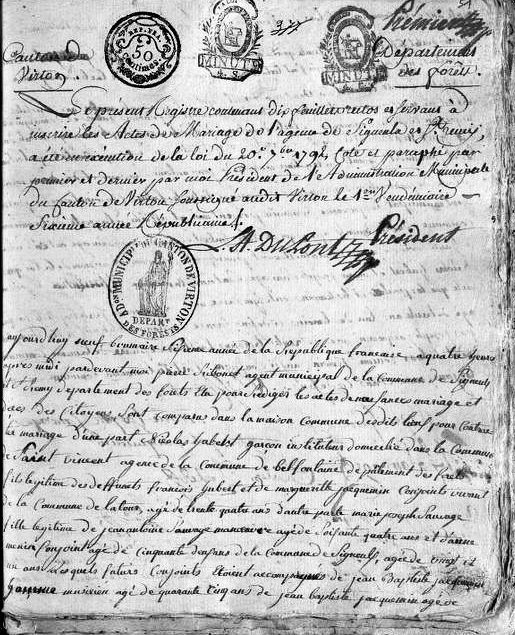 Prémier
Canton de
Virton
REP. FRA.
50
Centimes
MINUTE
MINUTE
377
Département
des forêts.
Le présent Registre contenant dix feuillets et servant à
inscrire les Actes de Mariage de l'agence de Signeulx et St Remy,
a été en exécution de la loi du 20e 7bre 1792, Coté et paraphé par
premier et dernier par moi Président de l'Administration Municipale
du Canton de Virton soussigné audit Virton le 1er Vendémiaire
Sixième année Républicaine.
A. DuPont Président
ADon MUNICIPle DU CANTON DE VIRTON
DEPARt
DES FORESTS
aujourd'huy neuf brumaire Sixieme année de la republique francaise, a quatre heures
apres midi pardevant moi pierre agent municipal de la Commune de Signeulx
et St remy departement des forets Elu pour rediger les actes de naissances mariage et
deces des Citoyens Sont comparus dans la maison Commune desdits lieux pour Contracter
mariage d'une part Nicolas hubert garcon instituteur domicilié dans la Commune
de Saint vincent agence de la Commune de bellfontaine departement des forets
fils legitime des deffunts francois hubert et de margueritte jacquemin Conjoints vivant
de la Commune de latour, agé de trente quatre ans d'autre part marie joseph Sauvage
fille legitime de jean antoine Sauvage manoeuvre agé de Soixante quatre ans et d'anne
Conjoint agé de Cinquante ans de la Commune de Signeulx, agée de vingt et
un ans Lesquels futurs Conjoints etoient accompagnés de jean Baptiste jacquemin
musicien agé de quarante Cinq ans de jean baptiste jacquemin agé de